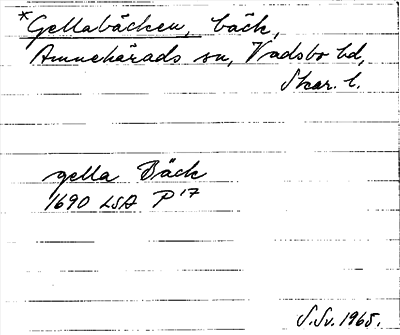 *Gellabäcken, bäck,
Amnehärads sn, Vadsbo hd,
Skar. l.
gella Bäck
1690 LSA P 17
S.Sv. 1965.